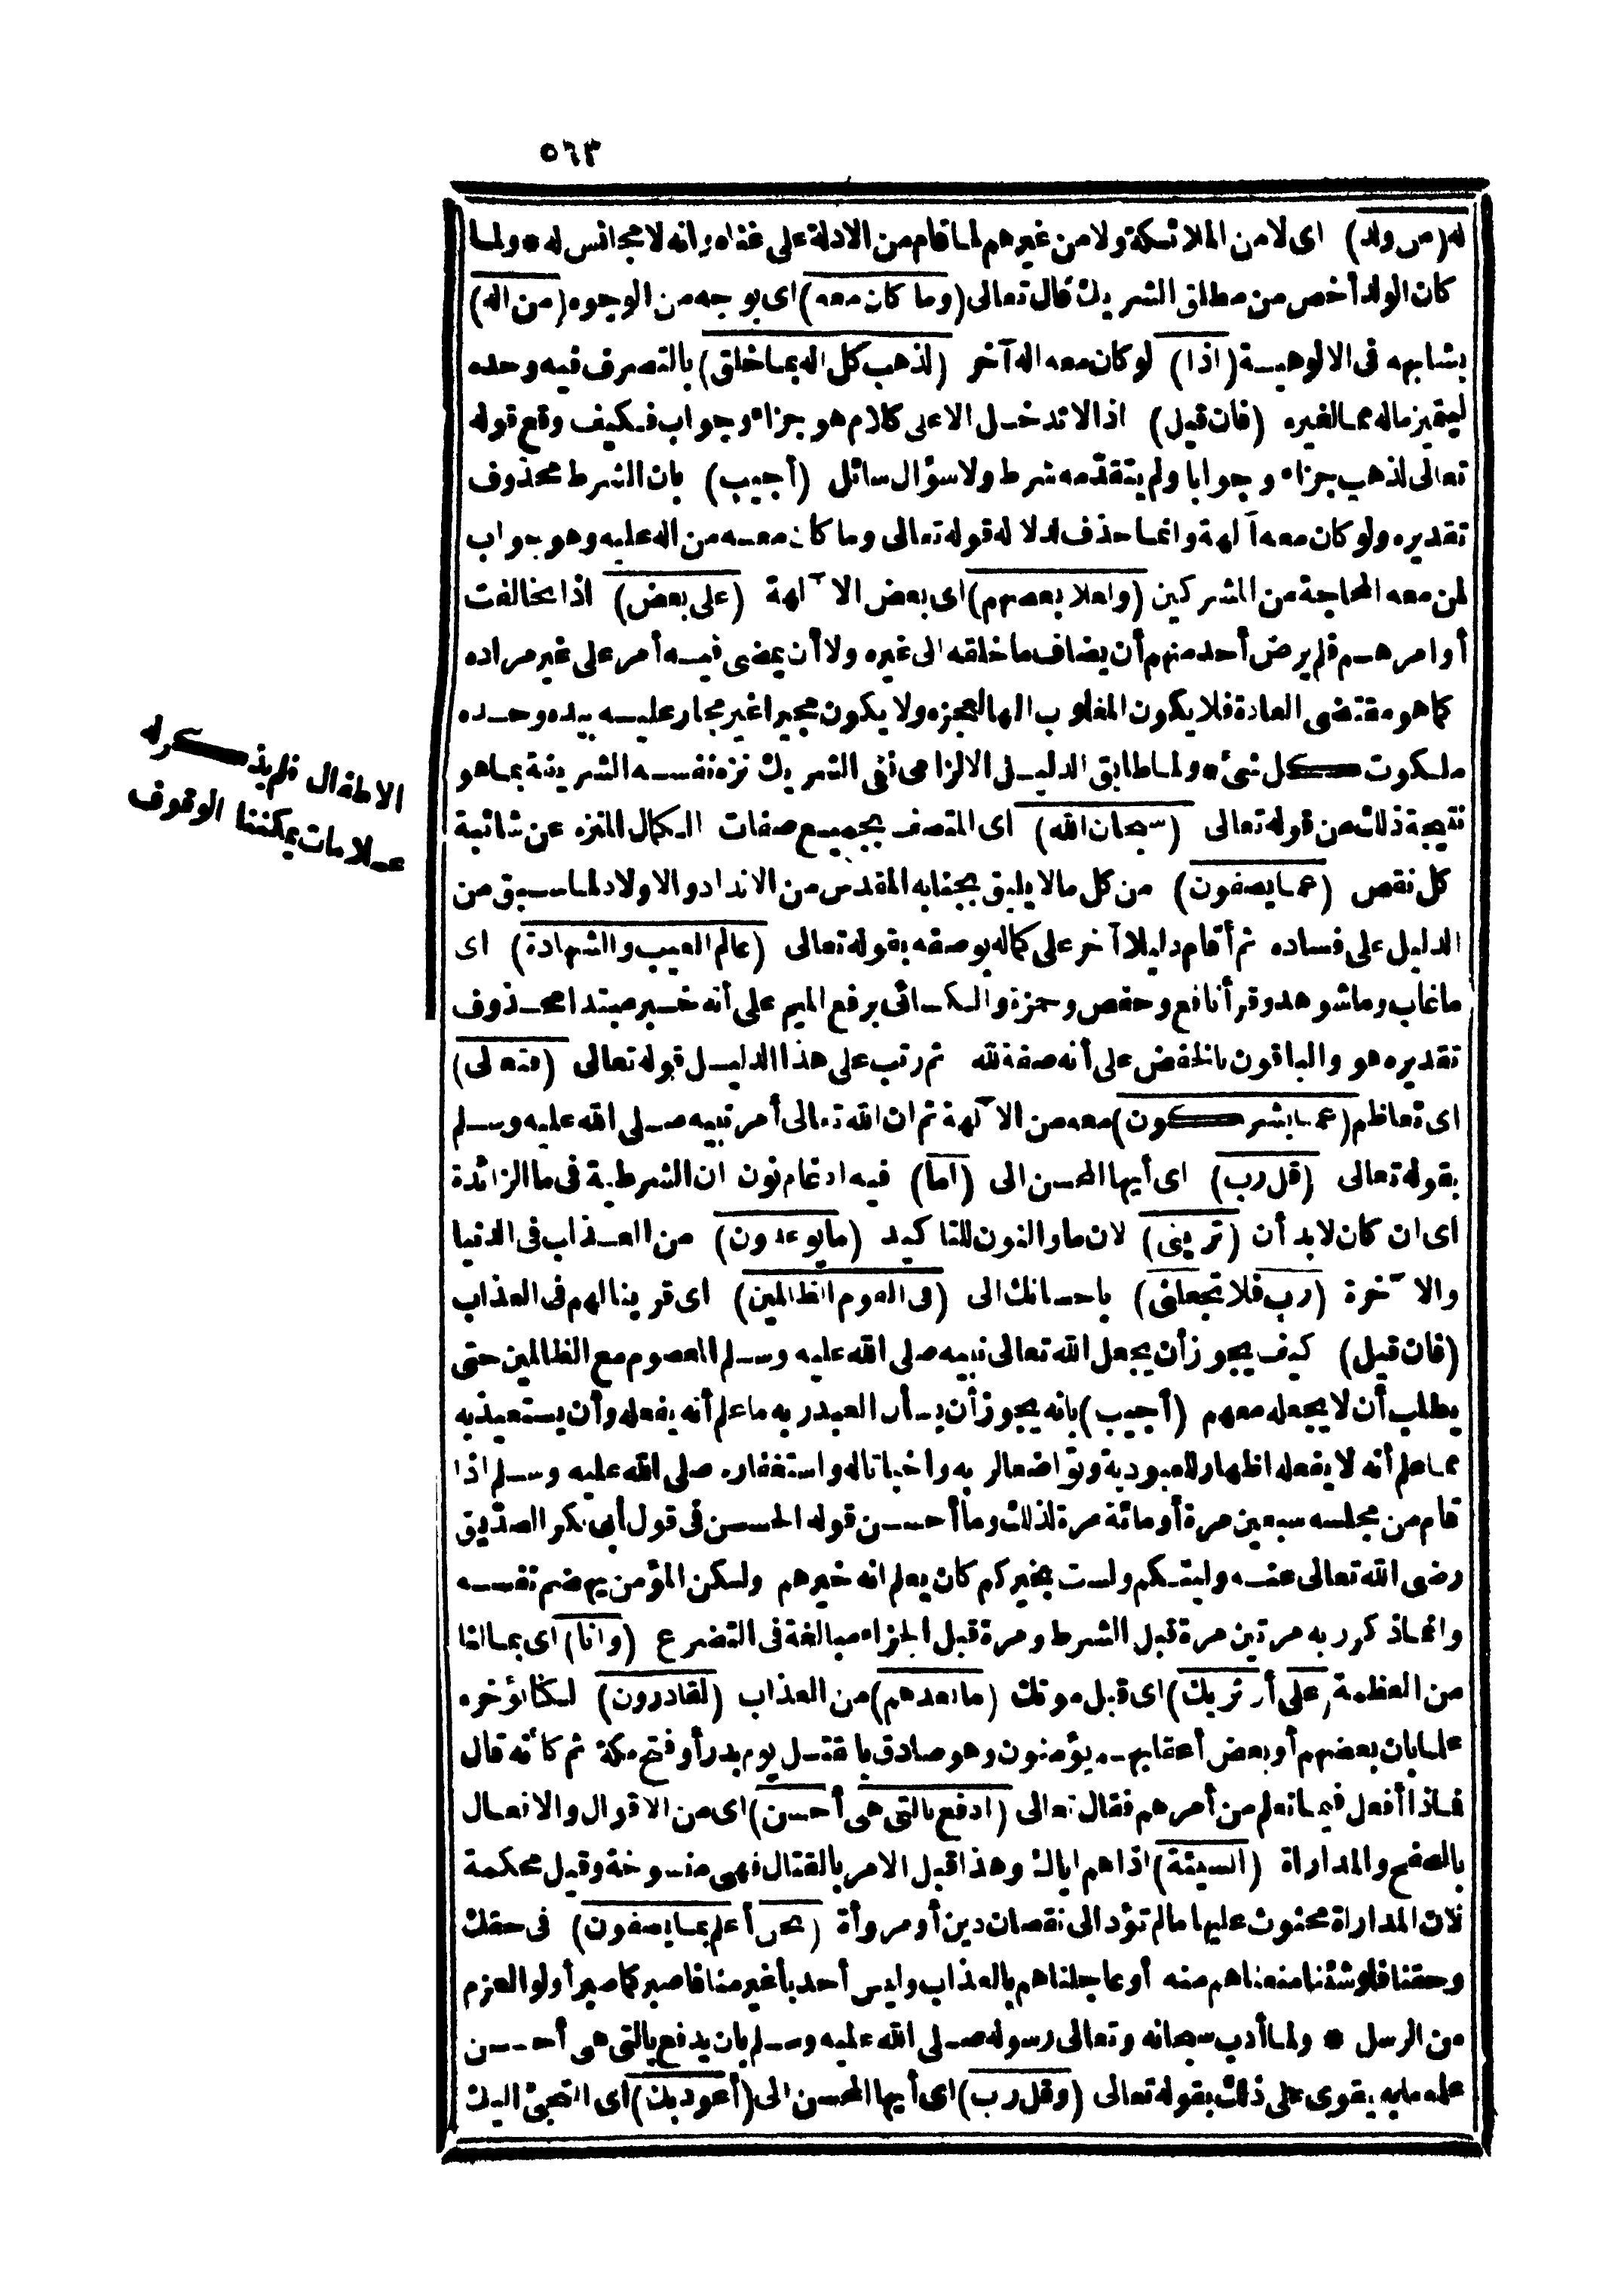 ٥٦٣
له (من ولد) اى لا من الملائكة ولا من غيرهم لما قام من الادلة على غناه وانه لا مجانس له * ولما
كان الولد أخص من مطلق الشريك قال تعالى (وما كان معه) اى بوجه من الوجوه (من اله)
يشابهه فى الالوهية (اذا) لو كان معه اله آخر (لذهب كل اله بما خلق) بالتصرف فيه وحده
ليتميز ماله مما لغيره (فان قيل) اذا لا تدخل الا على كلام هو جزاء وجواب فكيف وقع قوله
تعالى لذهب جزاء وجوابا ولم يتقدّمه شرط ولا سؤال سائل (أجيب) بان الشرط محذوف
تقديره ولو كان معه آلهة وانما حذف لدلالة قوله تعالى وما كان معه من اله عليه وهو جواب
لمن معه المحاجة من المشركين (ولعلا بعضهم) اى بعض الآلهة (على بعض) اذا تخالفت
أوامرهم فلم يرض أحد منهم أن يضاف ما خلقه الى غيره ولا أن يمضى فيه أمر على غير مراده
كما هو مقتضى العادة فلا يكون المغلوب الها لعجزه ولا يكون مجيرا غير مجار عليه بيده وحده
ملكوت كل شئ * ولما طابق الدليل الالزامى نفى الشريك نزه نفسه الشريفة بما هو
نتيجة ذلك من قوله تعالى (سبحان الله) اى المتصف بجميع صفات الكمال المنزه عن شائبة
كل نقص (عما يصفون) من كل ما لا يليق بجنابه المقدس من الانداد والاولاد لما سبق من
الدليل على فساده ثم أقام دليلا آخر على كماله بوصفه بقوله تعالى (عالم الغيب والشهادة) اى
ما غاب وما شوهد وقرأ نافع وحفص وحمزة والكسائى برفع الميم على أنه خبر مبتدا محذوف
تقديره هو والباقون بالخفض على أنه صفة لله ثم رتب على هذا الدليل قوله تعالى (فتعالى)
اى تعاظم (عما يشركون) معه من الآلهة ثم ان الله تعالى أمر نبيه صلى الله عليه وسلم
بقوله تعالى (قل رب) اى أيها المحسن الى (اما) فيه ادغام نون ان الشرطية فى ما الزائدة
اى ان كان لا بد أن (ترينى) لان ما والنون للتاكيد (ما يوعدون) من العذاب فى الدنيا
والآخرة (رب فلا تجعلنى) باحسانك الى (فى القوم الظالمين) اى قرينا لهم فى العذاب
(فان قيل) كيف يجوز أن يجعل الله تعالى نبيه صلى الله عليه وسلم المعصوم مع الظالمين حتى
يطلب أن لا يجعله معهم (أجيب) بانه يجوز أن يسأل العبد ربه ما علم أنه يفعله وأن يستعيذ به
مما علم أنه لا يفعله اظهارا للعبودية وتواضعا لربه واخباتا له واستغفاره صلى الله عليه وسلم اذا
قام من مجلسه سبعين مرة أو مائة مرة لذلك وما أحسن قول الحسن فى قول أبى بكر الصدّيق
رضى الله تعالى عنه وليتكم ولست بخيركم كان يعلم انه خيرهم ولكن المؤمن يهضم نفسه
وانما ذكر ربه مرتين مرة قبل الشرط ومرة قبل الجزاء مبالغة فى التضرع (وانا) اى بما لنا
من العظمة (على أن نريك) اى قبل موتك (ما نعدهم) من العذاب (لقادرون) لكنا نؤخره
علما بان بعضهم أو بعض أعقابهم يؤمنون وهو صادق بالقتل يوم بدر أو فتح مكة ثم كأنه قال
فماذا أفعل فيما تعلم من أمرهم فقال تعالى (ادفع بالتى هى أحسن) اى من الاقوال والافعال
بالصفح والمداراة (السيئة) اذاهم اياك وهذا قبل الامر بالقتال فهى منسوخة وقيل محكمة
لان المداراة محثوث عليها ما لم تؤد الى نقصان دين أو مروأة (نحن أعلم بما يصفون) فى حقك
وحقنا فلو شئنا منعناهم منه أو عاجلناهم بالعذاب وليس أحد بأغير منا فاصبر كما صبر أولو العزم
من الرسل * ولما أدب سبحانه وتعالى رسوله صلى الله عليه وسلم بان يدفع بالتى هى أحسن
علمه ما به يقوى على ذلك بقوله تعالى (وقل رب) اى أيها المحسن الى (أعوذ بك) اى التجئ اليك
الاطفال فلم يذكر له
علامات يمكننا الوقوف